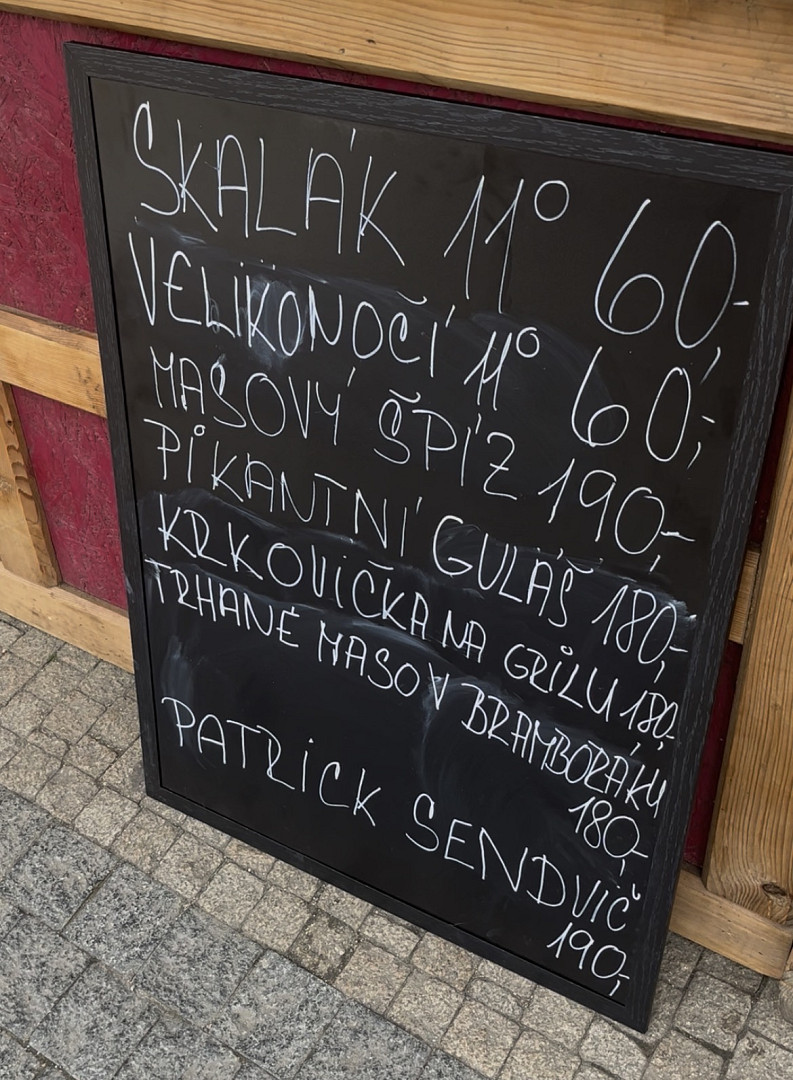 SKALÁK 11° 60,-
VELIKONOČÍ 11° 60,-
MASOVÝ ŠPÍZ 190,-
PIKANTNÍ GULÁŠ 180,-
KRKOVIČKA NA GRILU 180,-
TRHANÉ MASO V BRAMBORÁKU
180,-
PATRICK SENDVIČ
190,-